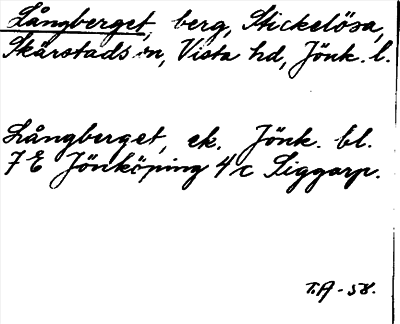 Långberget, berg, Stickelösa,
Skärstads sn, Vista hd, Jönk. l.
Långberget, ek. Jönk. bl.
7 E Jönköping 4 c Siggarp.
T.A - 58.